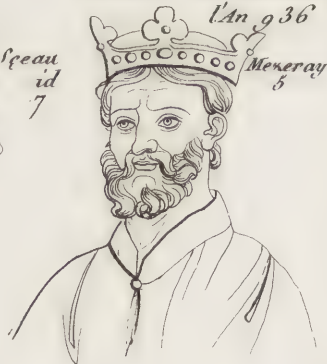 l'An 936
Sçeau
id
7
Mezeray
5